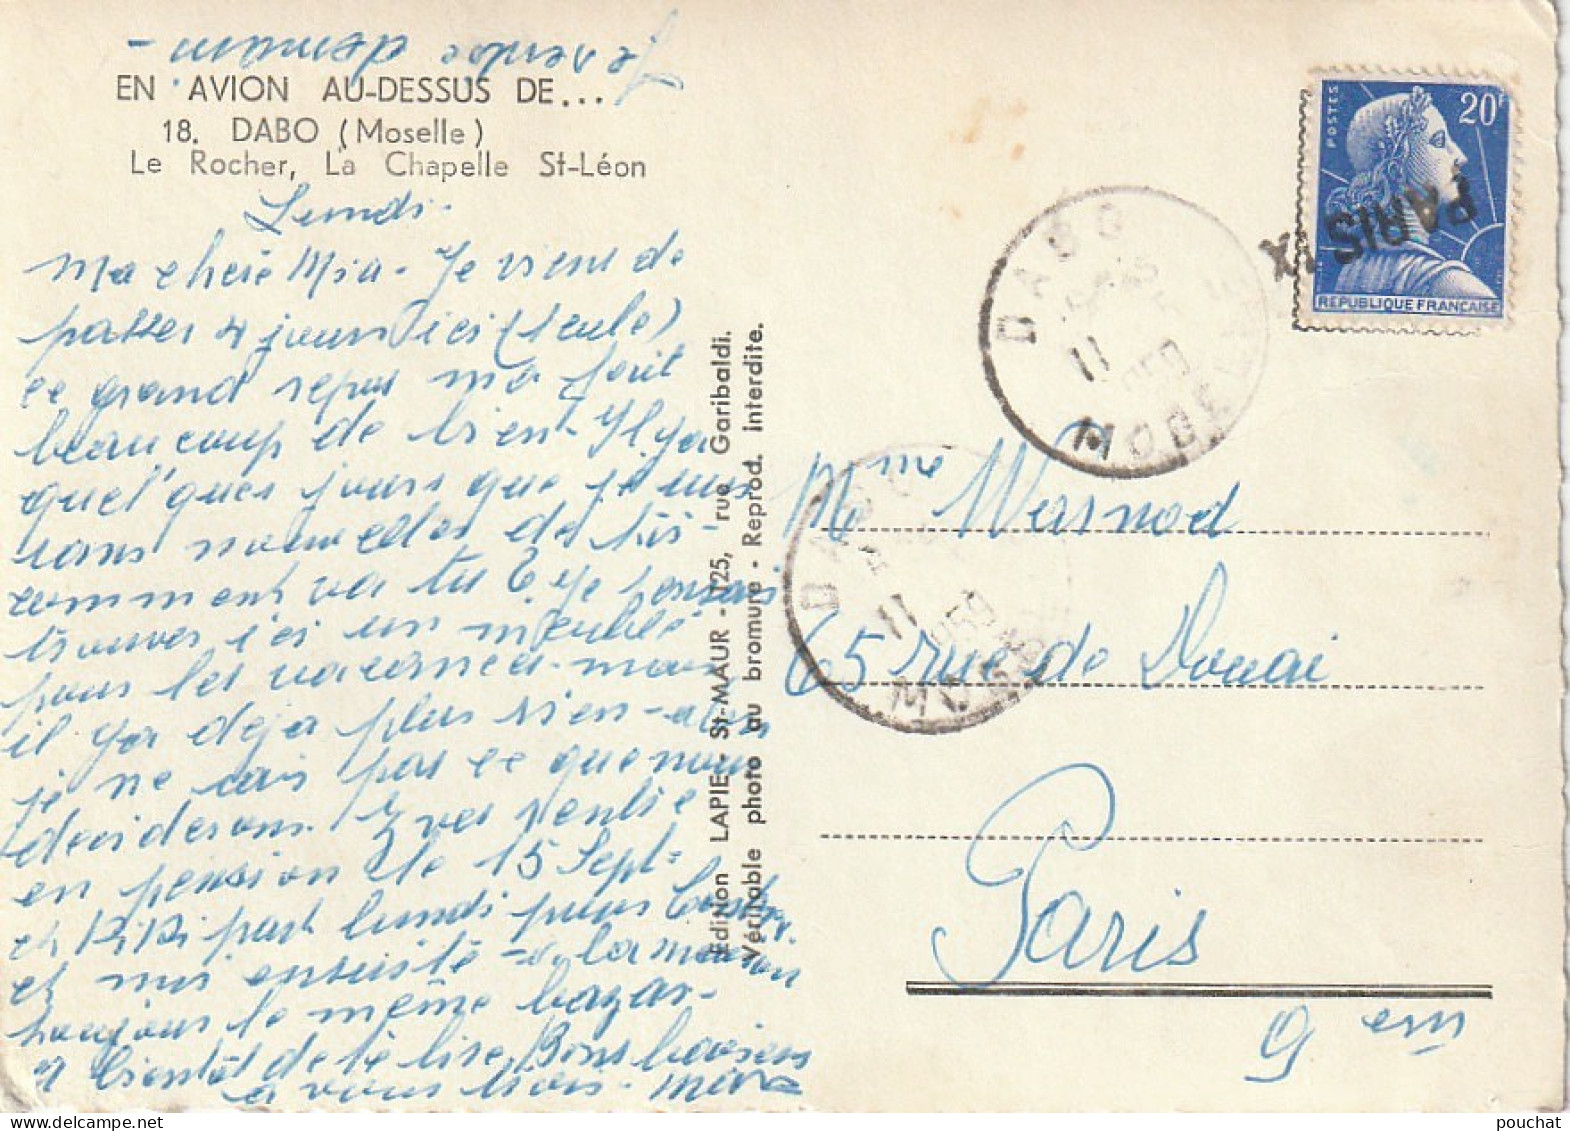 Je rentre demain -
EN AVION AU-DESSUS DE...
18. DABO (Moselle)
Le Rocher, La Chapelle St-Léon
Lundi -
Ma chère Mia - Je viens de
passer 4 jours ici (seule)
ce grand repos m'a fait
beaucoup de bien - Il y a
quelques jours que je suis
sans nouvelles de toi -
comment vas tu ? Je pensais
trouver ici un meublé
pour les vacances - mais
il y a déjà plus rien - alors
je ne sais pas ce que nous
déciderons.
en pension le 15 Sept -
et part lundi pour
et moi ensuite - à la maison
toujours le même bazar -
A bientôt de te lire. Bons baisers
à vous trois -
Edition LAPIE - St-MAUR - 125, rue Garibaldi.
Véritable photo au bromure - Reprod. interdite.
POSTES
20F
REPUBLIQUE FRANÇAISE
PARIS IX
DABO
11
MOSELLE
DABO
11
1959
MOSELLE
Mme Wersnod
65 rue de Douai
Paris
9 em
pouchat